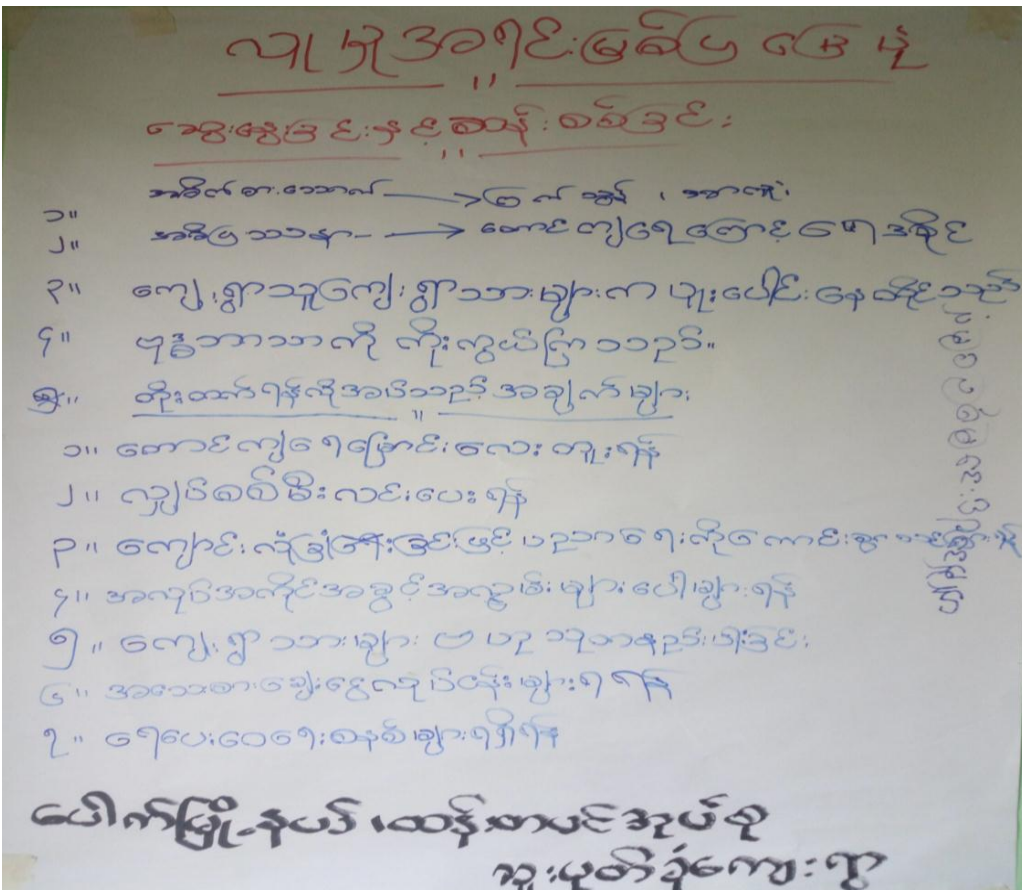 လူမှုအရင်းမြစ်ပြမြေပုံ
ဆွေးနွေးခြင်းနှင့်စာန်းစစ်ခြင်း
၁။ အဓိကစားသောက် → ကြက်သွန်၊
၂။ အဓိပြဿနာ - → တောင်ကျရေကြောင့်ရေ
၃။ ကျေးရွာသူကျေးရွာသားများက ပူးပေါင်းနေထိုင်သည်
၄။ ဗုဒ္ဓဘာသာကို ကိုးကွယ်ကြသည်။
၅။ တိုးတက်ရန်လိုအပ်သည့်အချက်များ
၁။ တောင်ကျရေမြောင်းလေးတူးရန်
၂။ လျှပ်စစ်မီးလင်းပေးရန်
၃။ ကျောင်းလုံခြုံရေးခြင်းဖြင့် ပညာရေးကိုကောင်းစွာ
၄။ အလုပ်အကိုင်အခွင့်အလမ်းများပေါများရန်
၅။ ကျေးရွာသားများ ဗဟုသုတနည်းပါးခြင်း
၆။ အသေးစားချေးငွေလုပ်ငန်းများရရန်
၇။ ရေပေးဝေရေးစနစ်များရရှိရန်
ပေါက်မြို့နယ်၊ထန်းစာပင်အုပ်စု
ကျေးရွာ